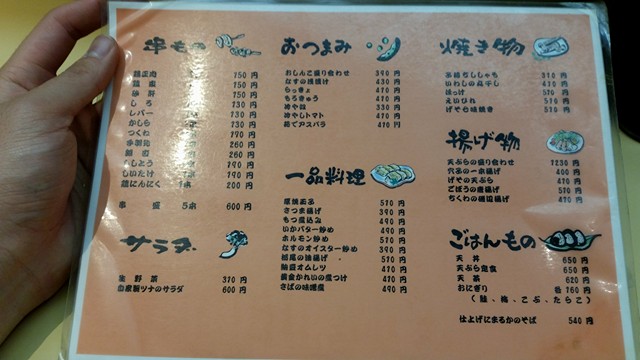 串もの
鶏正肉 150 円
150 円
150 円
しろ 130 円
レバー 130 円
かしら 130 円
つくね 190 円
260 円
260 円
ししとう 190 円
しいたけ 1本 190 円
にんにく 1本 200 円
串 盛 5本 600 円
サラダ
生野菜 370 円
自家製ツナのサラダ 600 円
おつまみ
おしんこ盛り合わせ 390 円
なすの浅漬け 430 円
らっきょ 470 円
もろきゅう 470 円
冷やっこ 330 円
冷やしトマト 470 円
茹でアスパラ 470 円
一品料理
厚焼玉子 570 円
さつま揚げ 390 円
もつ煮込み 490 円
いかバター炒め 490 円
ホルモン炒め 570 円
なすのオイスター炒め 390 円
栃尾の油揚げ 570 円
オムレツ 470 円
黄金かれいの煮つけ 470 円
さばの味噌煮 490 円
焼き物
子持ちししゃも 310 円
いわしの丸干し 430 円
ほっけ 570 円
えいひれ 510 円
げそ七味焼き 510 円
揚げ物
天ぷらの盛り合わせ 1230 円
穴子の一本揚げ 400 円
げその天ぷら 470 円
ごぼうの唐揚げ 510 円
ちくわの磯辺揚げ 470 円
ごはんもの
天 丼 650 円
天ぷら定食 650 円
天 茶 620 円
おにぎり 各 160 円
(鮭、梅、こぶ、たらこ)
仕上げにまるかのそば 540 円